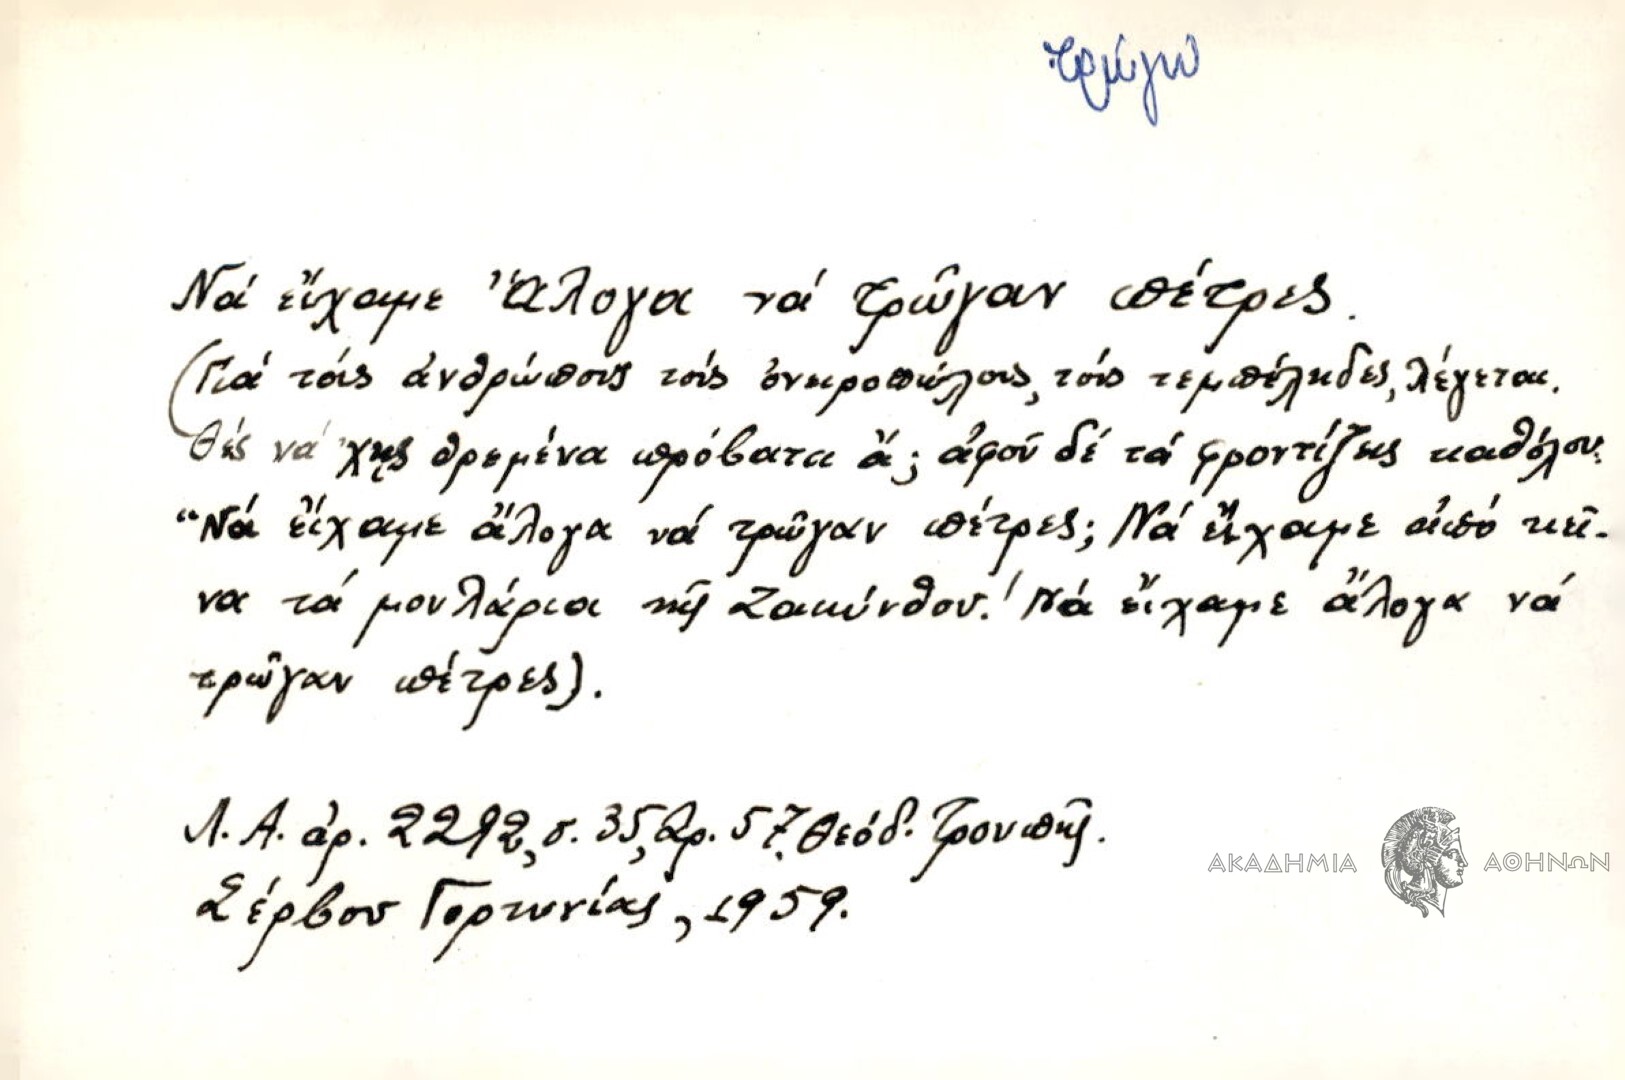 τρώγω
Νά εἴχαμε Ἄλογα νά τρῶγαν πέτρες.
(Γιά τούς ἀνθρώπους τούς ὀνειροπώλους, τούς τεμπέληδες, λέγεται.
Θές νά 'χῃς θρεμένα πρόβατα ἅ; ἀφοῦ δέ τά φροντίζεις καθόλου;
"Νά εἴχαμε ἄλογα νά τρῶγαν πέτρες; Νά εἴχαμε ἀπό κεῖ-
να τά μουλάρια τῆς Ζακύνθου! Νά εἴχαμε ἄλογα νά
τρῶγαν πέτρες).
Λ. Α. ἀρ. 2292, σ. 35, Ἀρ. 57, Θεόδ. Τρουπῆς.
Σέρβου Γορτυνίας, 1959.
ΑΚΑΔΗΜΙΑ ΑΘΗΝΩΝ